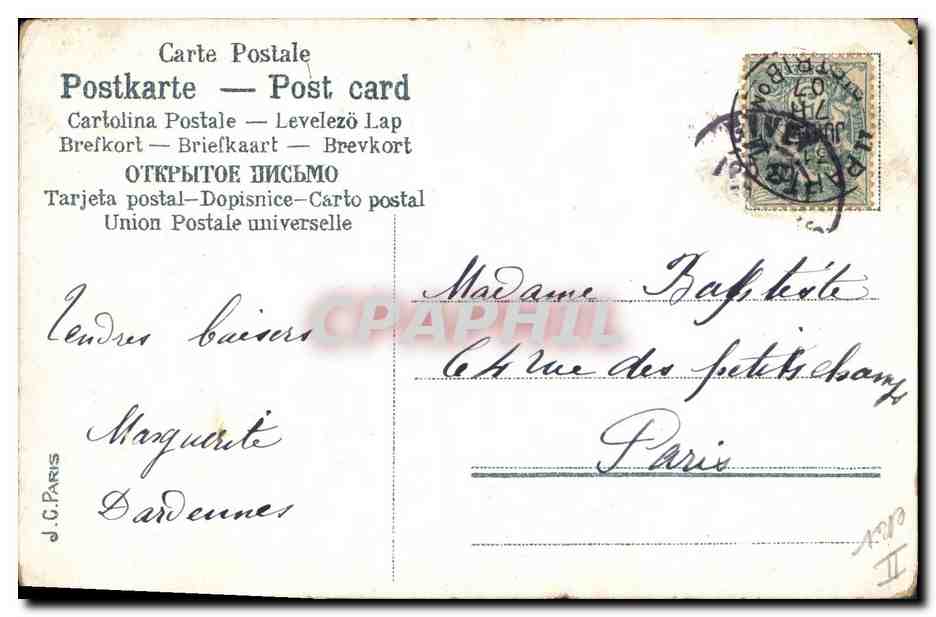 Carte Postale
Postkarte — Post card
Cartolina Postale — Levelezö Lap
Brefkort — Briefkaart — Brevkort
ОТКРЫТОЕ ПИСЬМО
Tarjeta postal—Dopisnice—Carto postal
Union Postale universelle
Tendres baisers
Marguerite
Dardennes
Madame Baptiste
64 rue des petits champs
Paris
J.C. PARIS
CPAPHIL
PARIS
DISTRIB
07
II